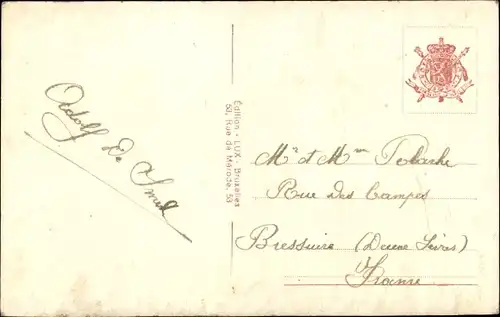 Adolf De Smet
Édition - LUX - Bruxelles
53, Rue de Mérode, 53
Mr et Mme
Rue des Campes
Bressuire (Deux Sèvres)
France